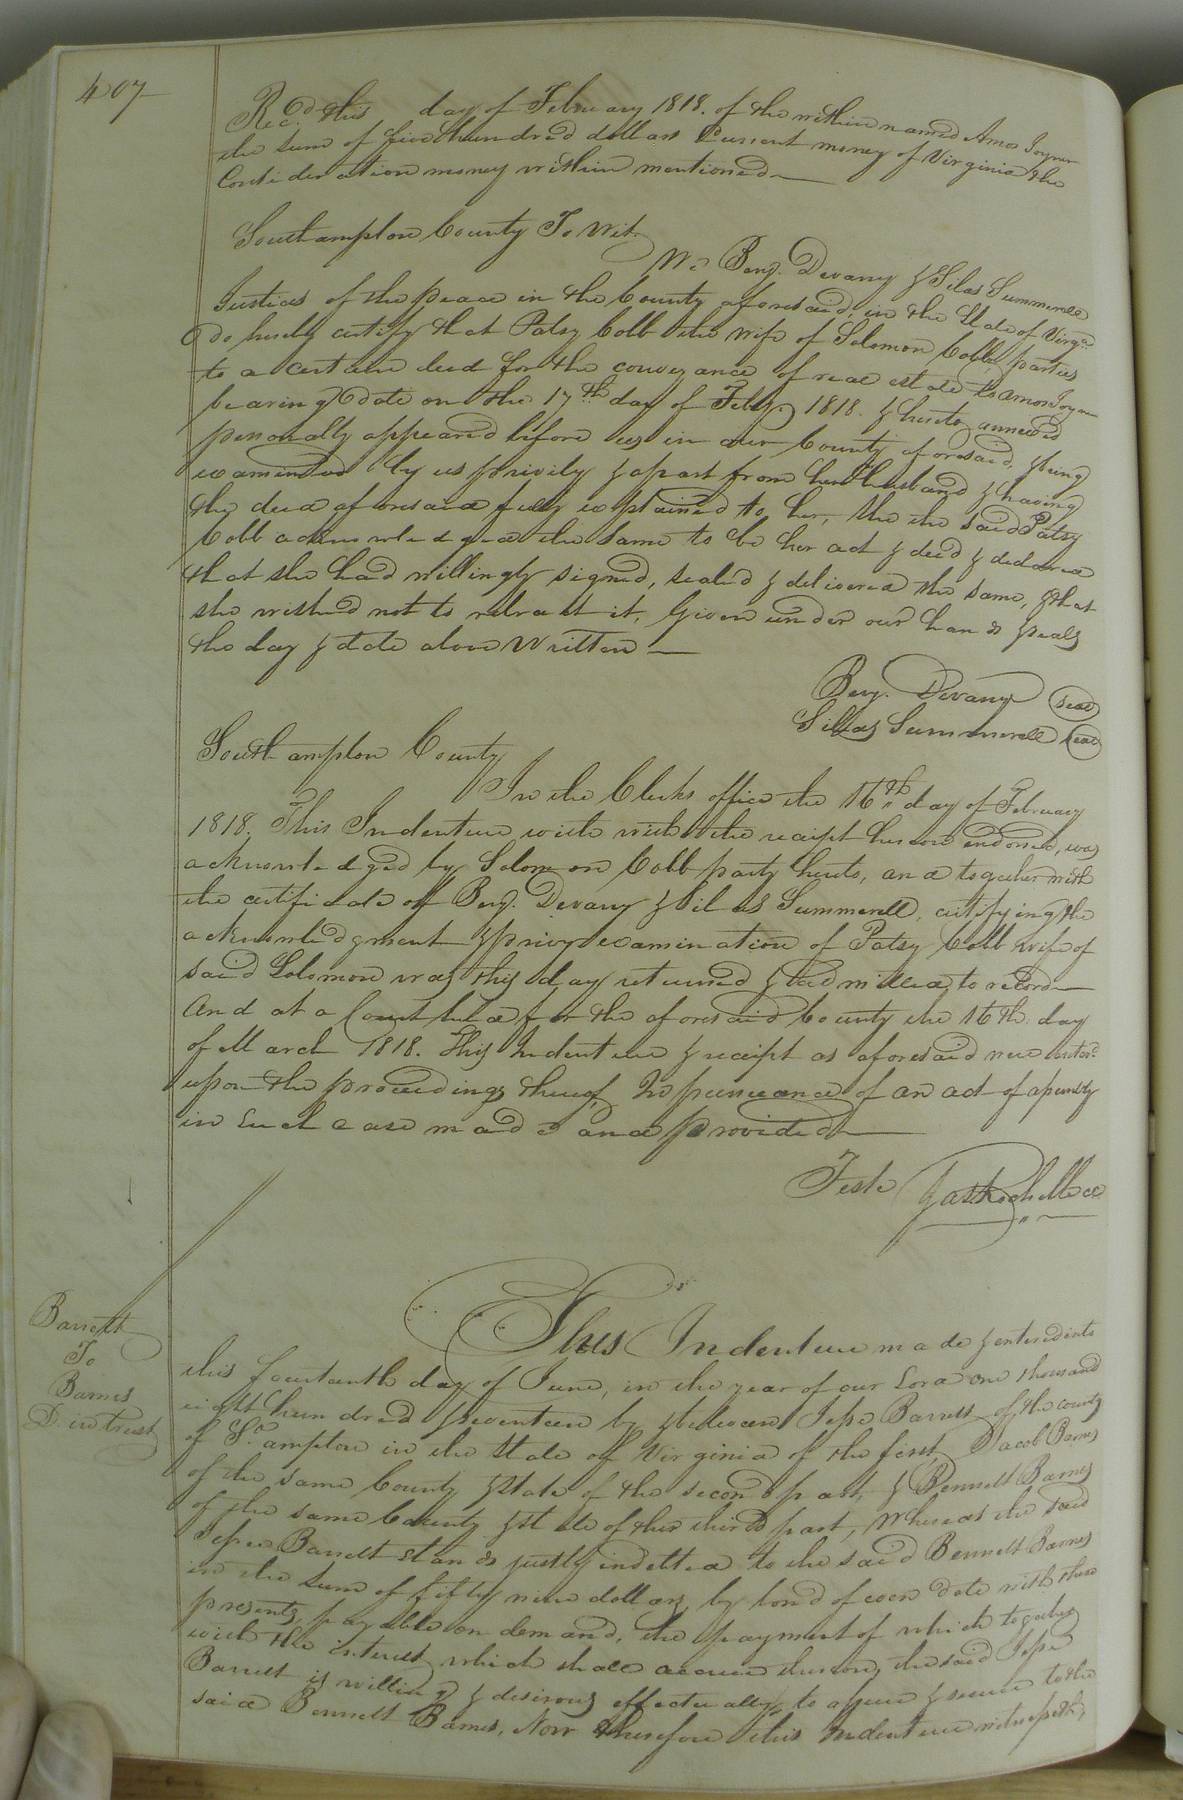 407
Rec.d this day of February 1818. of the within named Amos Joyner
the sum of five hundred dollars Current money of Virginia the
Consideration money within mentioned
Southampton County To Wit.
We Benj. Devany & Silas Summerell
Justices of the peace in the County aforesaid, in the State of Virga.
do hereby certify that Patsy Cobb the wife of Solomon Cobb, parties
to a certain deed for the conveyance of real estate to Amos Joyner
bearing date on the 17th day of Feby. 1818. & hereto annexed
personally appeared before us in our County aforesaid, & being
examined by us privily & apart from her husband & having
the deed aforesaid fully explained to her, the the said Patsy
Cobb acknowledged the same to be her act & deed & declared
that she had willingly signed, sealed & delivered the same, & that
she wished not to retract it. Given under our hands & seals
the day & date above written
Benj. Devany seal
Sillas Summerell seal
Southampton County
In the Clerks office the 16th day of February
1818. This Indenture with with the receipt hereon endorsed, was
acknowledged by Solomon Cobb party hereto, and together with
the certificate of Benj. Devany & Silas Summerell, certifying the
acknowledgment & privy examination of Patsy Cobb wife of
said Solomon was this day returned & admitted to record
And at a Court held for the aforesaid County the 16th day
of March 1818. This Indenture & receipt as aforesaid were enterd.
upon the proceedings thereof, In pursuance of an act of assembly
in such case made and provided
Teste Jas Rochelle cc
Barrett
To
Barnes
D. in trust
This Indenture made & entered into
this fourteenth day of June, in the year of our Lord one thousand
eight hundred & seventeen by & between Jesse Barrett of the county
of So.ampton in the State of Virginia of the first, Jacob Barnes
of the same County & State of the second part, & Bennett Barnes
of the same County & State of the third part, Whereas the said
Jesse Barrett stands justly indebted to the said Bennett Barnes
in the sum of fifty nine dollars, by bond of even date with these
presents, payable on demand, the payment of which together
with the interest which shall accrue thereon, the said Jesse
Barrett is willing & desirous effectually, to assure & secure to the
said Bennett Barnes, Now therefore this Indenture witnesseth,